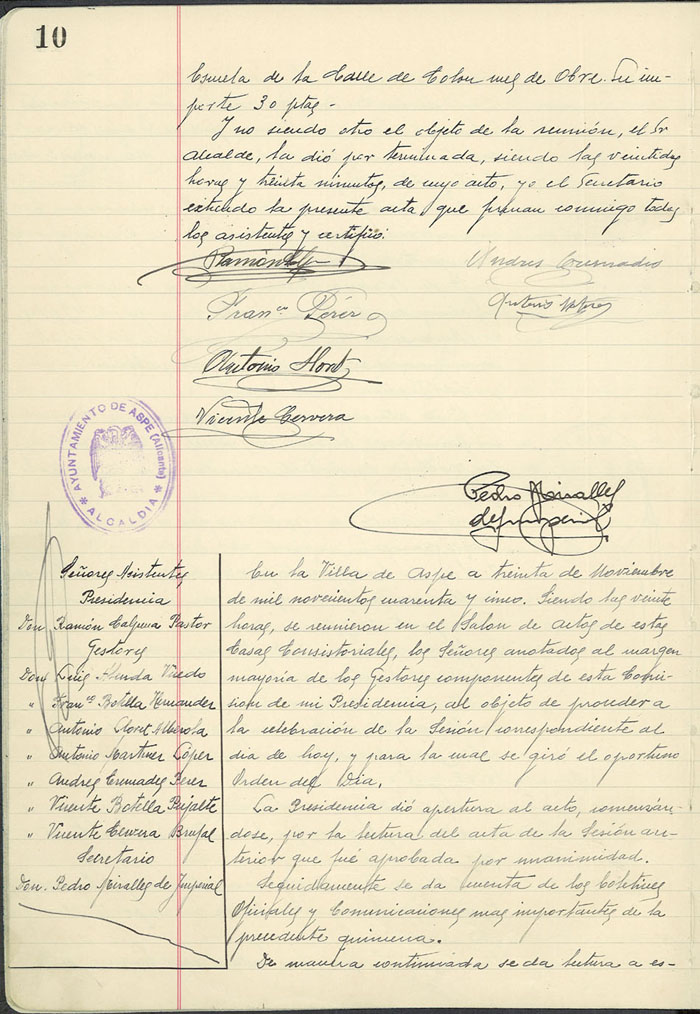 10
Escuela de la Calle de Colon mes de Obre. Su im-
porte 30 ptas -
Y no siendo otro el objeto de la reunión, el Sr
Alcalde, la dió por terminada, siendo las veintidos
horas y treinta minutos, de cuyo acto, yo el Secretario
extiendo la presente acta que firman conmigo todos
los asistentes y certifico.
Ramón
Andres Cremades
Franco Pérez
Antonio
Antonio Lloret
Vicente Cervera
AYUNTAMIENTO DE ASPE (Alicante)
ALCALDIA
Pedro Miralles
de Imperial
Señores Asistentes
Presidencia
Don Ramón Calpena Pastor
Gestores
Don Luis Vicedo
" Franco Botella Hernandez
" Antonio Lloret Alberola
" Antonio Martinez López
" Andres Cremades Perez
" Vicente Botella Pujalte
" Vicente Cervera Brufal
Secretario
Don Pedro Miralles de Imperial
En la Villa de Aspe a treinta de Noviembre
de mil novecientos cuarenta y cinco. Siendo las veinte
horas, se reunieron en el Salon de actos de estas
Casas Consistoriales, los Señores anotados al margen
mayoria de los Gestores componentes de esta Comi-
sion de mi Presidencia, al objeto de proceder a
la celebración de la Sesión correspondiente al
dia de hoy, y para la cual se giró el oportuno
Orden del Dia.
La Presidencia dió apertura al acto, comenzan-
dose, por la lectura del acta de la Sesión an-
terior que fué aprobada por unanimidad.
Seguidamente se da cuenta de los Boletines
Oficiales y Comunicaciones mas importantes de la
precedente quincena.
De manera continuada se da lectura a es-